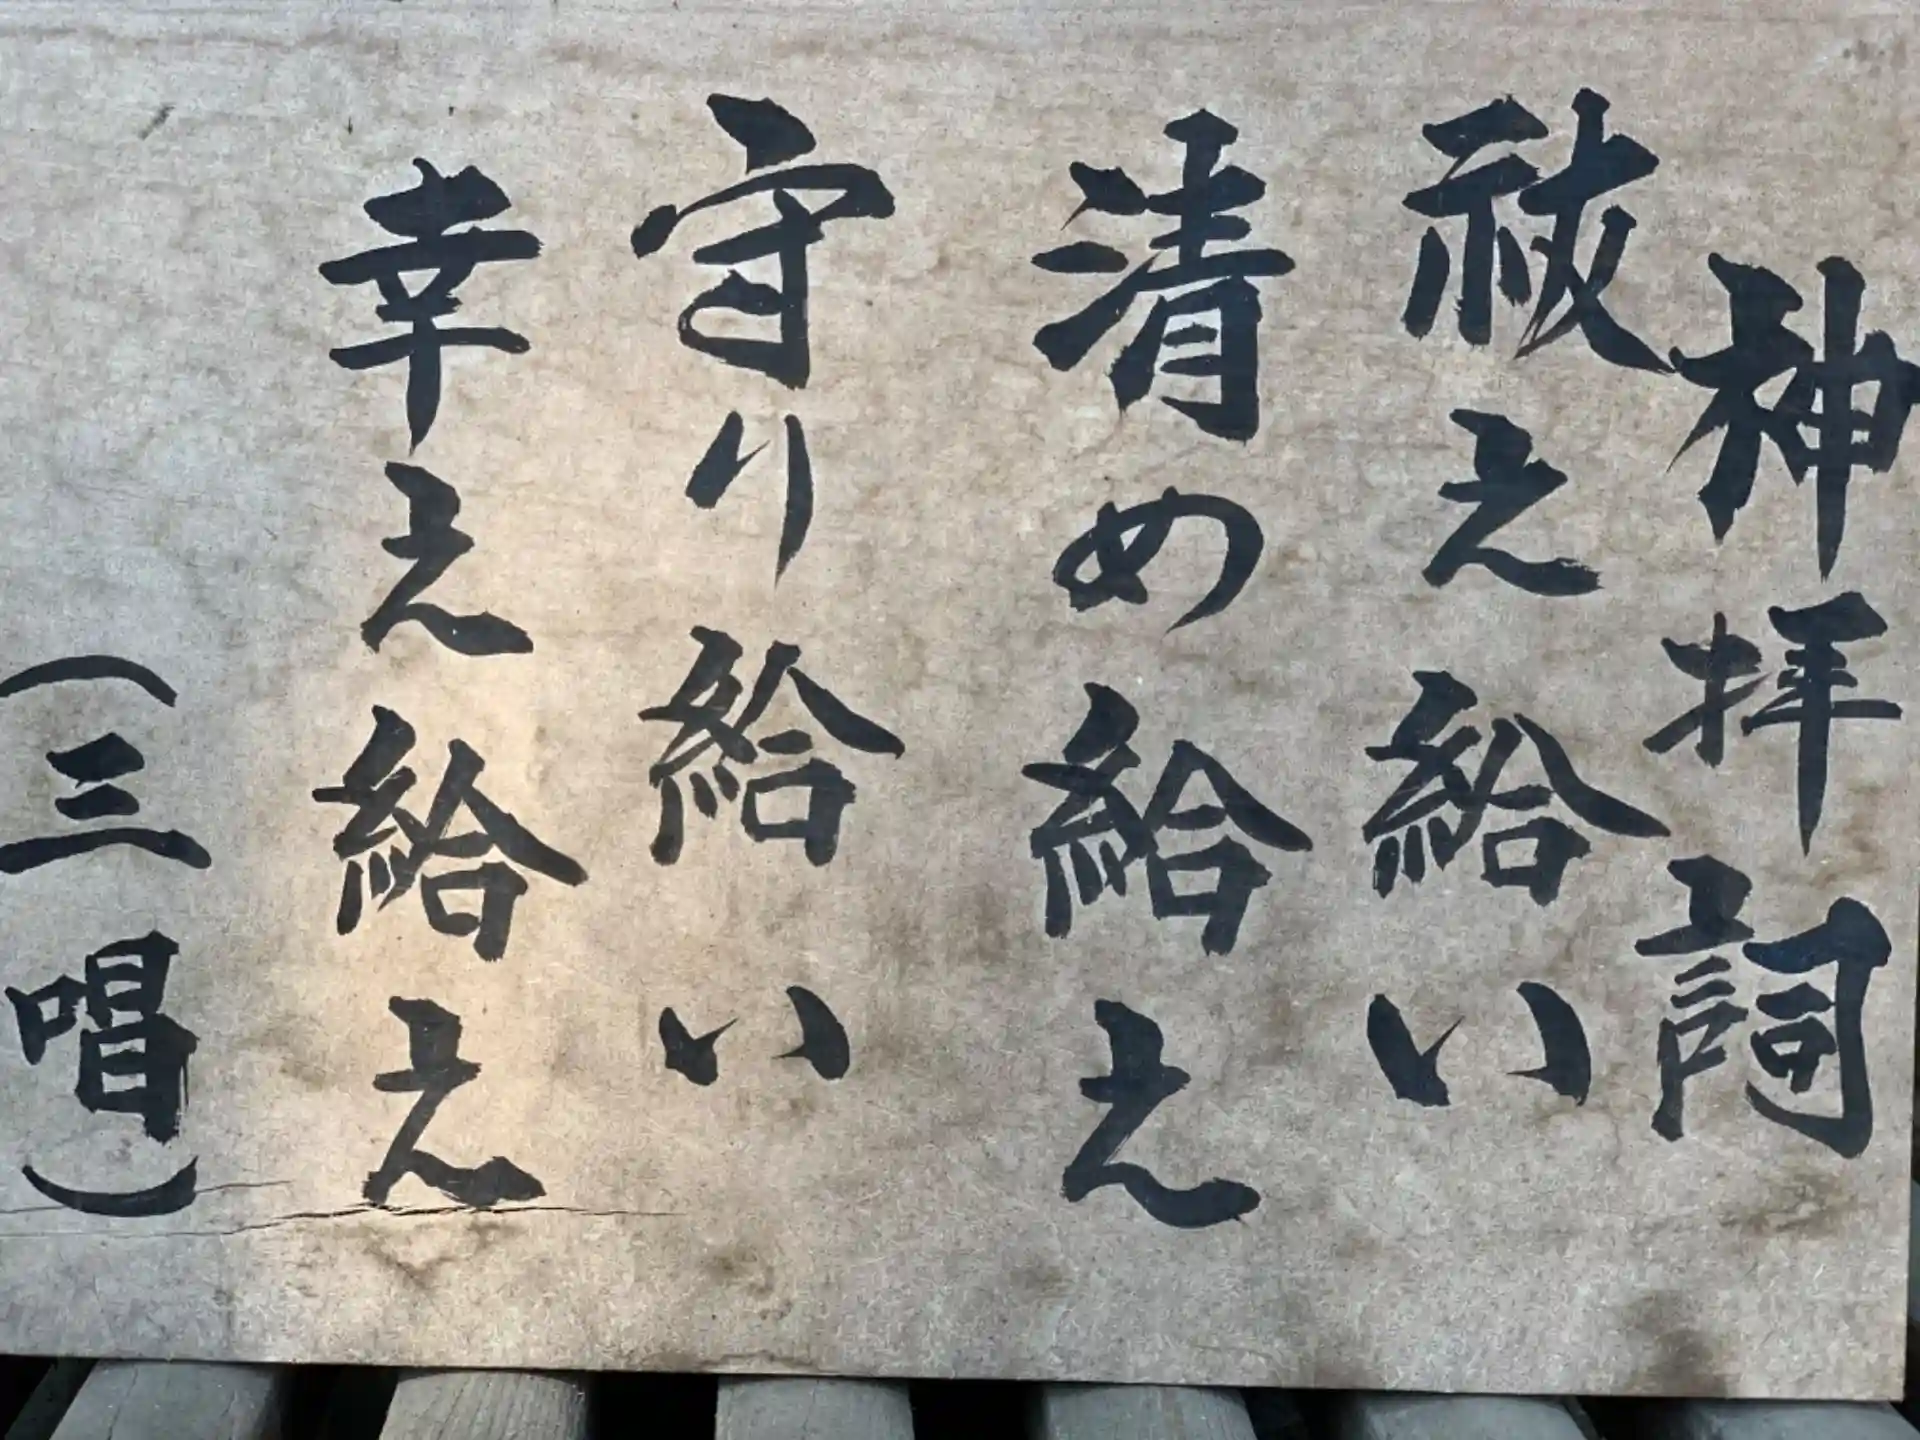 神拝詞
祓え給い
清め給え
守り給い
幸え給え
（三唱）